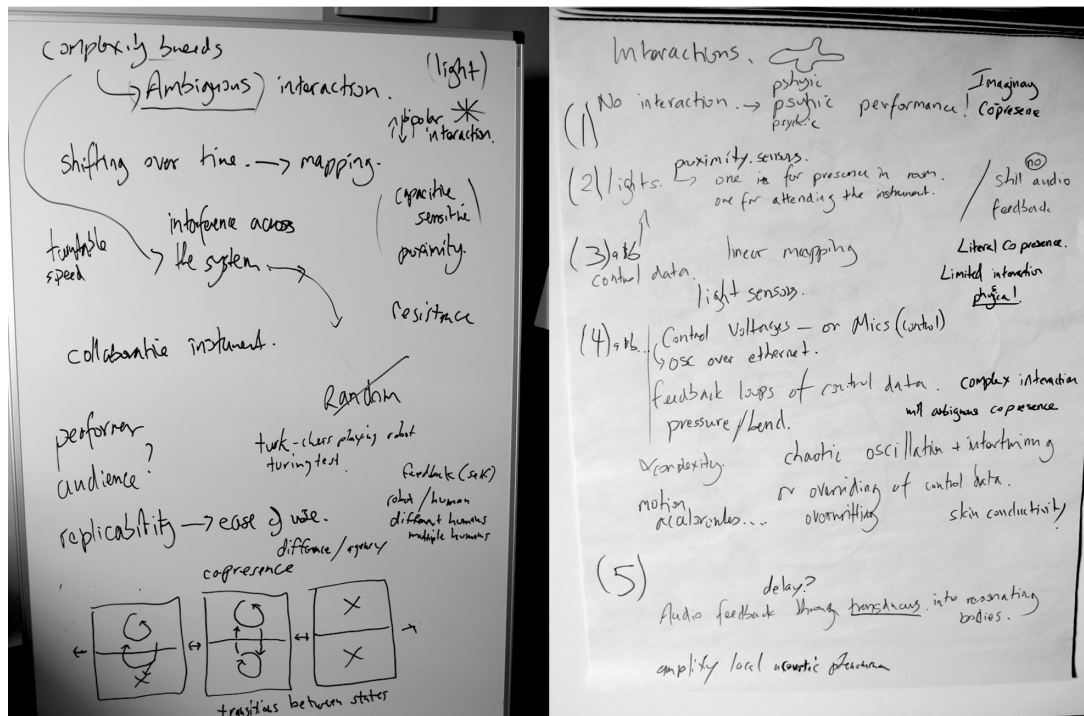 complexity breeds
Ambiguous interaction.
(light)
bipolar
interaction.
shifting over time. → mapping.
(capacitive
sensitive)
proximity.
turntable
speed
interference across
the system.
resistance
collaborative instrument.
Random
performer
audience?
turk - chess playing robot
turing test.
feedback (self)
robot / human
different humans
multiple humans
replicability → ease of use.
difference / agency
copresence
transitions between states
Interactions.
pshyic
(1) No interaction. → psychic performance!
psychic
Imaginary
Copresence
(2) lights. proximity. sensors.
one is for presence in room.
one for attending the instrument.
no
still audio
feedback
(3) a&b linear mapping
control data.
light sensors.
Literal Copresence.
Limited interaction
physical.
(4) a&b.. Control Voltages – or Mics (control)
OSC over ethernet.
feedback loops of control data.
pressure / bend.
complex interaction
ambiguous copresence
complexity. chaotic oscillation + intertwining
or overriding of control data.
motion
overwritting
skin conductivity
(5)
delay?
Audio feedback through transducers. into resonating
bodies.
amplify local acoustic phenomena